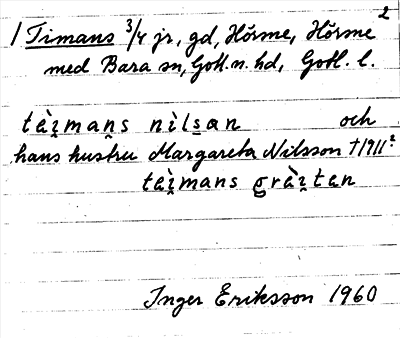 2
1 Timans 3/4 jr, gd, Hörme, Hörme
med Bara sn, Gotl. n. hd, Gotl. l.
tàimans nìlsan och
hans hustru Margareta Nilsson †1911?
tàimans gràitan
Inger Eriksson 1960